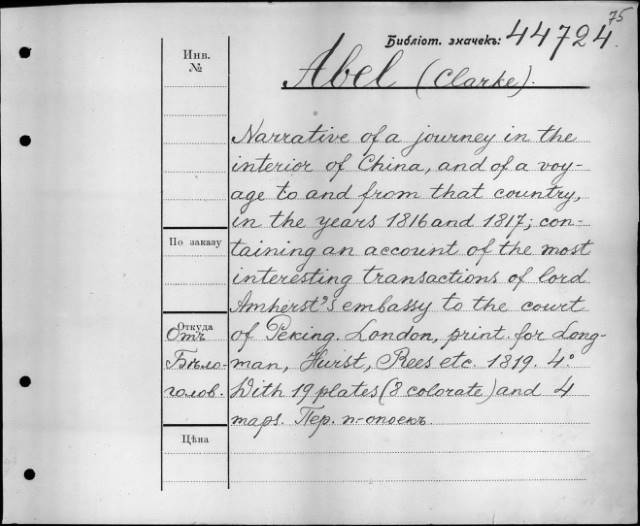 75
Библіот. значекъ: 44724
Инв.
№
Abel (Clarke).
Narrative of a journey in the
interior of China, and of a voy-
age to and from that country,
in the years 1816 and 1817; con-
По заказу
taining an account of the most
interesting transactions of lord
Amherst's embassy to the court
Откуда
Отъ
of Peking. London, print. for Long-
Бѣло-
man, Hurst, Rees etc. 1819. 4.°
голов.
With 19 plates (8 colorate) and 4
maps. Пер. п-опоекъ.
Цѣна